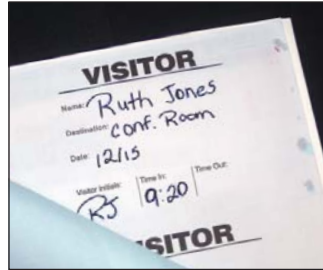 VISITOR
Name: Ruth Jones
Destination: Conf. Room
Date: 12/15
Visitor Initials: Time In: Time Out:
RJ 9:20
SITOR